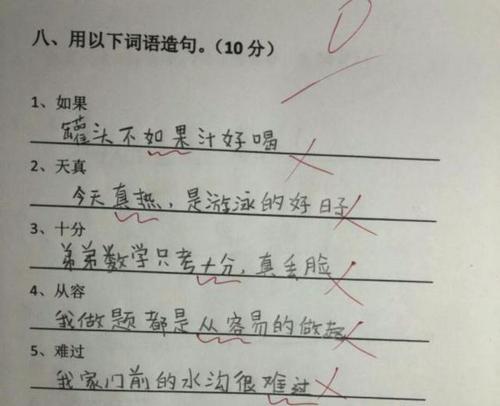 八、用以下词语造句。（10 分）
0
1、如果
罐头不如果汁好喝
2、天真
今天真热，是游泳的好日子
3、十分
弟弟数学只考十分，真丢脸
4、从容
我做题都是从容易的做起
5、难过
我家门前的水沟很难过